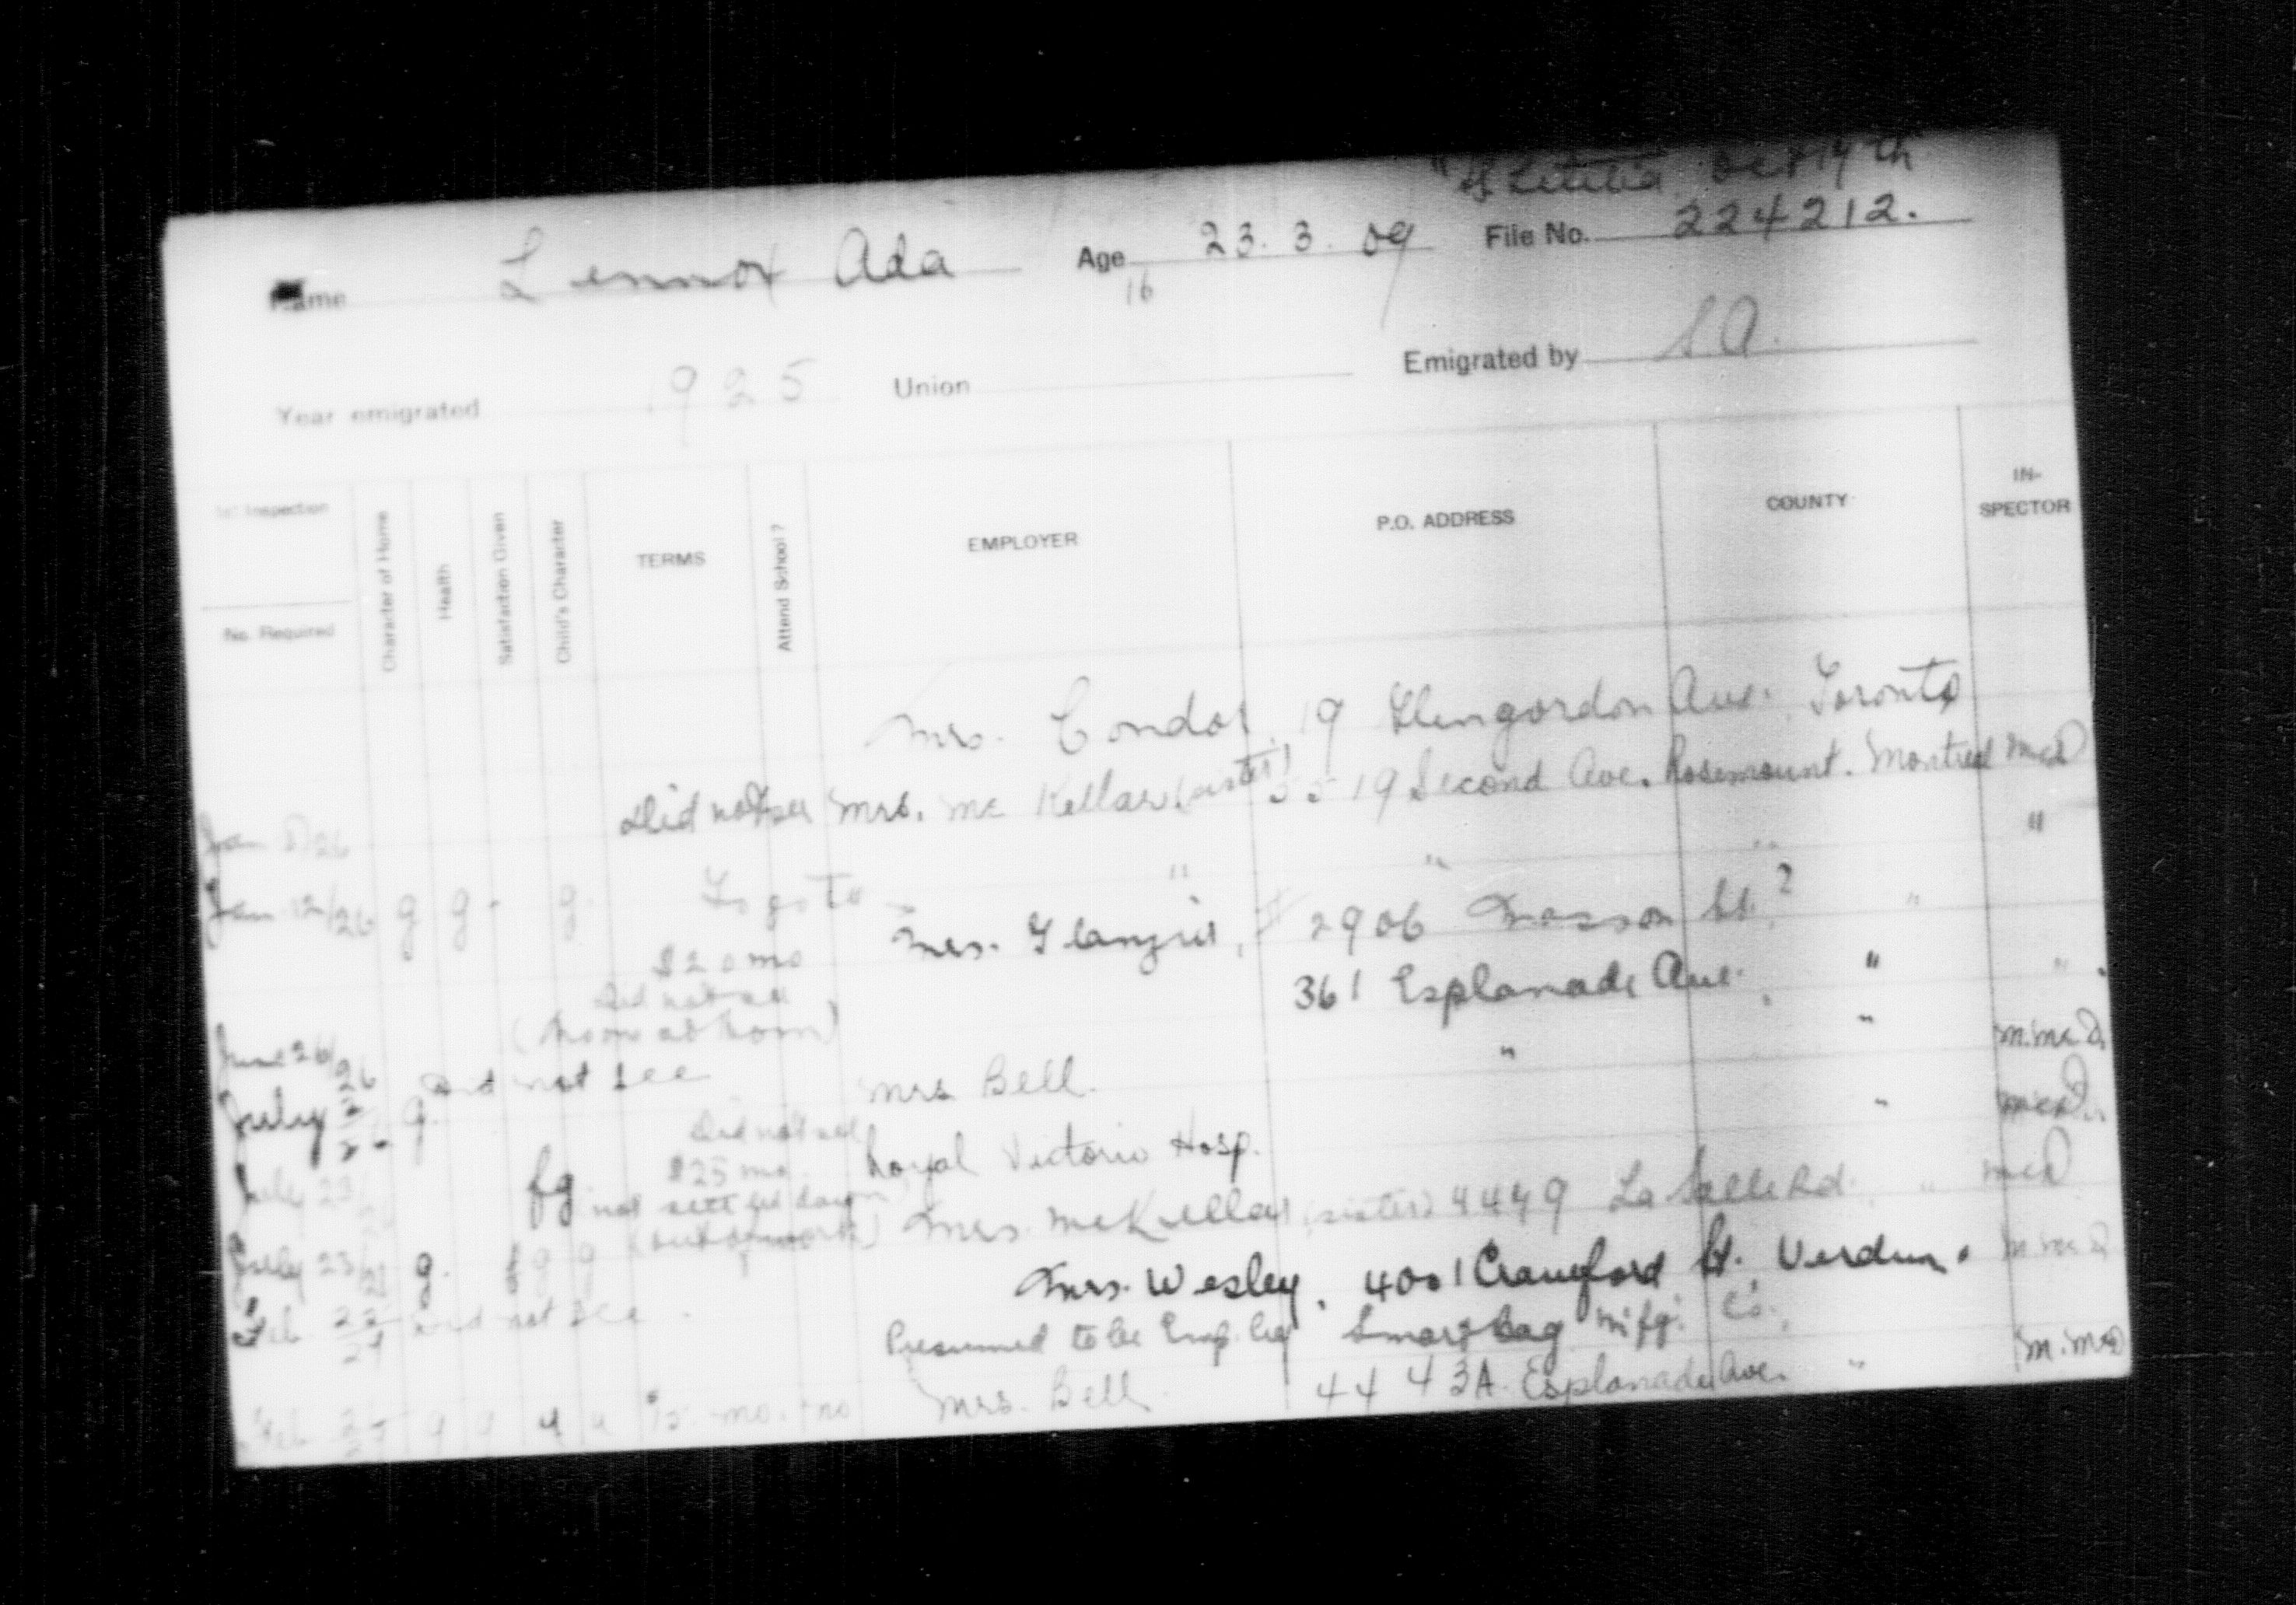 "Letitia" Oct 17th
Name Lennox Ada Age 23. 3. 09 File No. 224212.
16
Year emigrated 1925 Union Emigrated by S.A.
1st Inspection
No. Required
Character of Home
Health
Satisfaction Given
Child's Character
TERMS
Attend School?
EMPLOYER
P.O. ADDRESS
COUNTY
IN-
SPECTOR
Mrs. Condor, 19 Glengordon Ave. Toronto
Jan 26 Did not see Mrs. McKellar (sister) 5519 Second Ave. Rosemount. Montreal McD
Jan 12/26 g g - g. To go to " " " "
$20 mo Mrs. 2906 Masson St.? "
Did not see 361 Esplanade Ave. " "
June 26/26 " " M.McD.
July g. Did not see Mrs Bell. " McD.
July 23 Did not see Royal Victoria Hosp. McD
$25 mo.
fg. not settled down Mrs. McKellar (sister) 4449 La Salle Rd. " M.McD
July 23 g. g g (out of work)
Mrs. Wesley, 4001 Crawford St. Verdun.
Feb. Did not see. Presumed to be Emp. by Smart Bag Mfg. Co.
Feb. g g g g mo. no Mrs. Bell 4443A Esplanade Ave. " M.McD